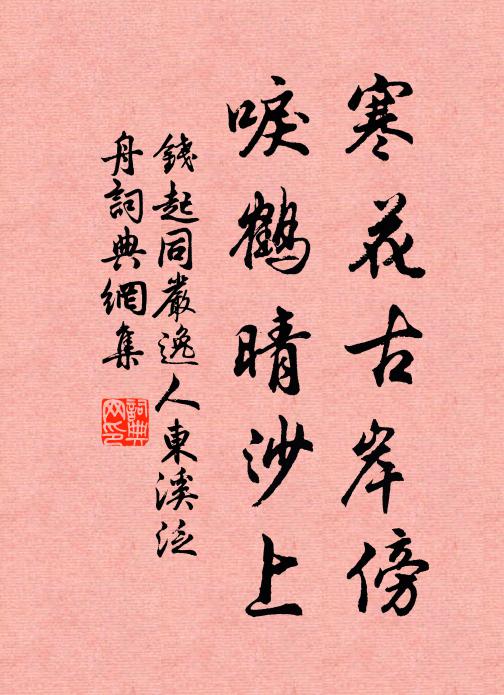 寒花古岸傍
唳鶴晴沙上
錢起同嚴逸人東溪泛
舟詞典網集
詞典网印